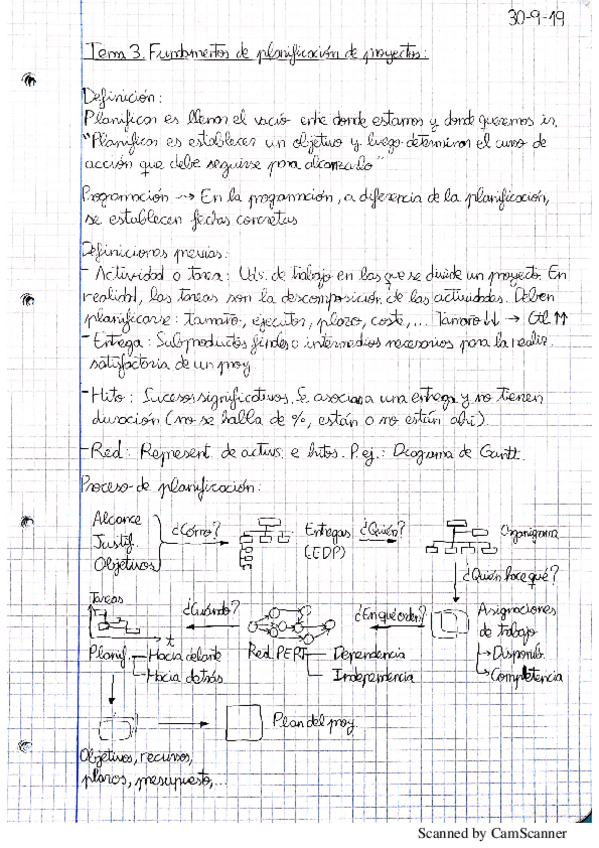 30-9-19
Tema 3. Fundamentos de planificación de proyectos:
Definición:
Planificar es llenar el vacío entre donde estamos y donde queremos ir.
"Planificar es establecer un objetivo y luego determinar el curso de
acción que debe seguirse para alcanzarlo"
Programación → En la programación, a diferencia de la planificación,
se establecen fechas concretas
Definiciones previas:
- Actividad o tarea: Uds. de trabajo en las que se divide un proyecto. En
realidad, las tareas son la descomposición de las actividades. Deben
planificarse: tamaño, ejecutor, plazo, coste,... Tamaño ↓↓ → Ctl ↑↑
- Entrega: Subproductos finales o intermedios necesarios para la realiz.
satisfactoria de un proy
- Hito: Sucesos significativos. Se asocia a una entrega y no tienen
duración (no se habla de %, están o no están ahí).
- Red: Represent. de activs. e hitos. P. ej.: Diagrama de Gantt.
Proceso de planificación:
Alcance
Justif.
Objetivos
¿Cómo?
Entregas
(EDP)
¿Quién?
Organigrama
¿Quién hace qué?
Asignaciones
de trabajo
→ Disponib.
→ Competencia
¿En qué orden?
Red. PERT
Dependencia
Independencia
¿Cuándo?
Tareas
t
Planif.
Hacia delante
Hacia detrás
Objetivos, recursos,
plazos, presupuesto,...
Plan del proy
Scanned by CamScanner